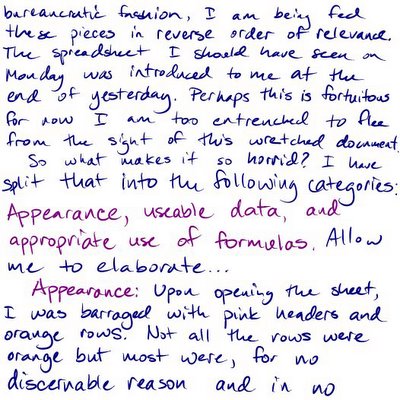 bureaucratic fashion, I am being fed
these pieces in reverse order of relevance.
The spreadsheet I should have seen on
Monday was introduced to me at the
end of yesterday. Perhaps this is fortuitous
for now I am too entrenched to flee
from the sight of this wretched document.
So what makes it so horrid? I have
split that into the following categories:
Appearance, useable data, and
appropriate use of formulas. Allow
me to elaborate...
Appearance: Upon opening the sheet,
I was barraged with pink headers and
orange rows. Not all the rows were
orange but most were, for no
discernable reason and in no